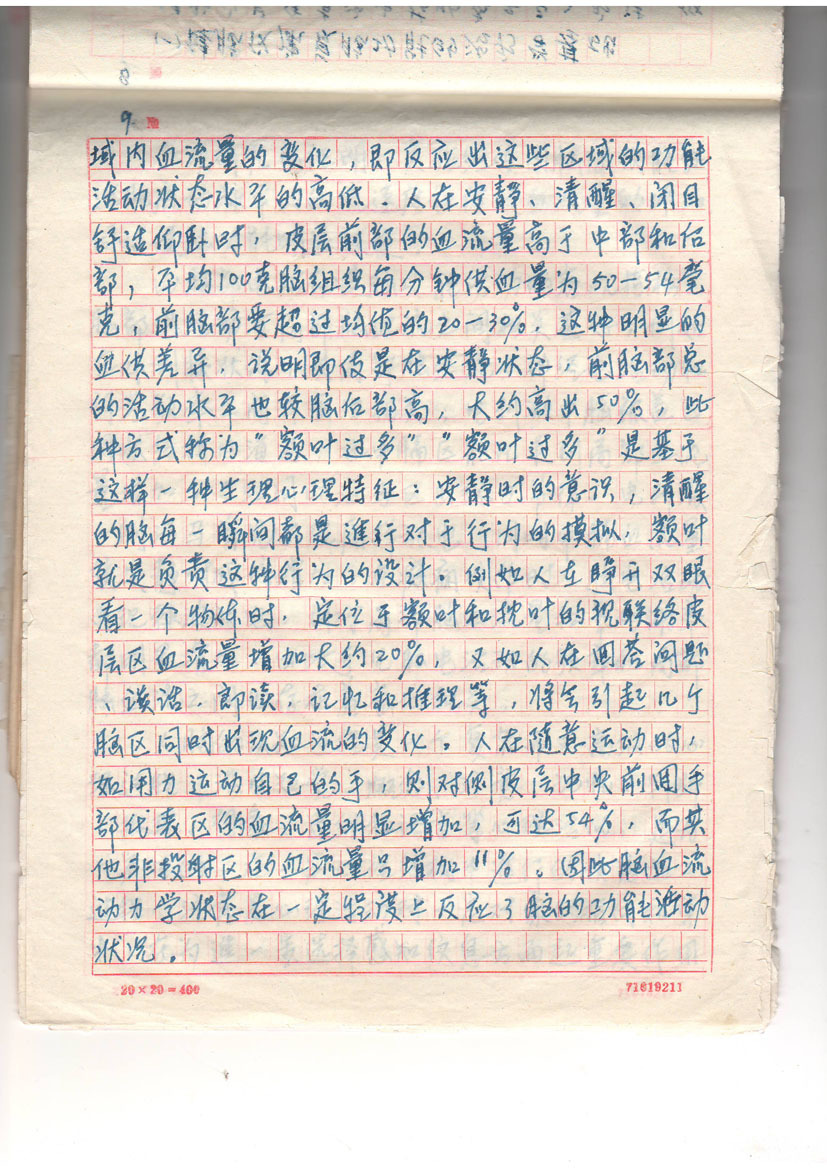 9
域内血流量的变化，即反应出这些区域的功能
活动状态水平的高低．人在安静、清醒、闭目
舒适仰卧时，皮层前部的血流量高于中部和后
部，平均100克脑组织每分钟供血量为50—54毫
克，前脑部要超过均值的20—30%．这种明显的
血供差异，说明即使是在安静状态，前脑部总
的活动水平也较脑后部高，大约高出50%，此
种方式称为“额叶过多”“额叶过多”是基于
这样一种生理心理特征：安静时的意识，清醒
的脑每一瞬间都是進行对于行为的摸拟，额叶
就是负责这种行为的设计。例如人在睁开双眼
看一个物体时，定位于额叶和枕叶的视联络皮
层区血流量增加大约20%，又如人在回答问题
、谈话、即读、记忆和推理等，将会引起几个
脑区同时出现血流的变化。人在随意运动时，
如用力运动自己的手，则对侧皮层中央前回手
部代表区的血流量明显增加，可达54%，而其
他非投射区的血流量只增加11%。因此脑血流
动力学状态在一定程度上反应了脑的功能活动
状况。
20×20=400 71619211